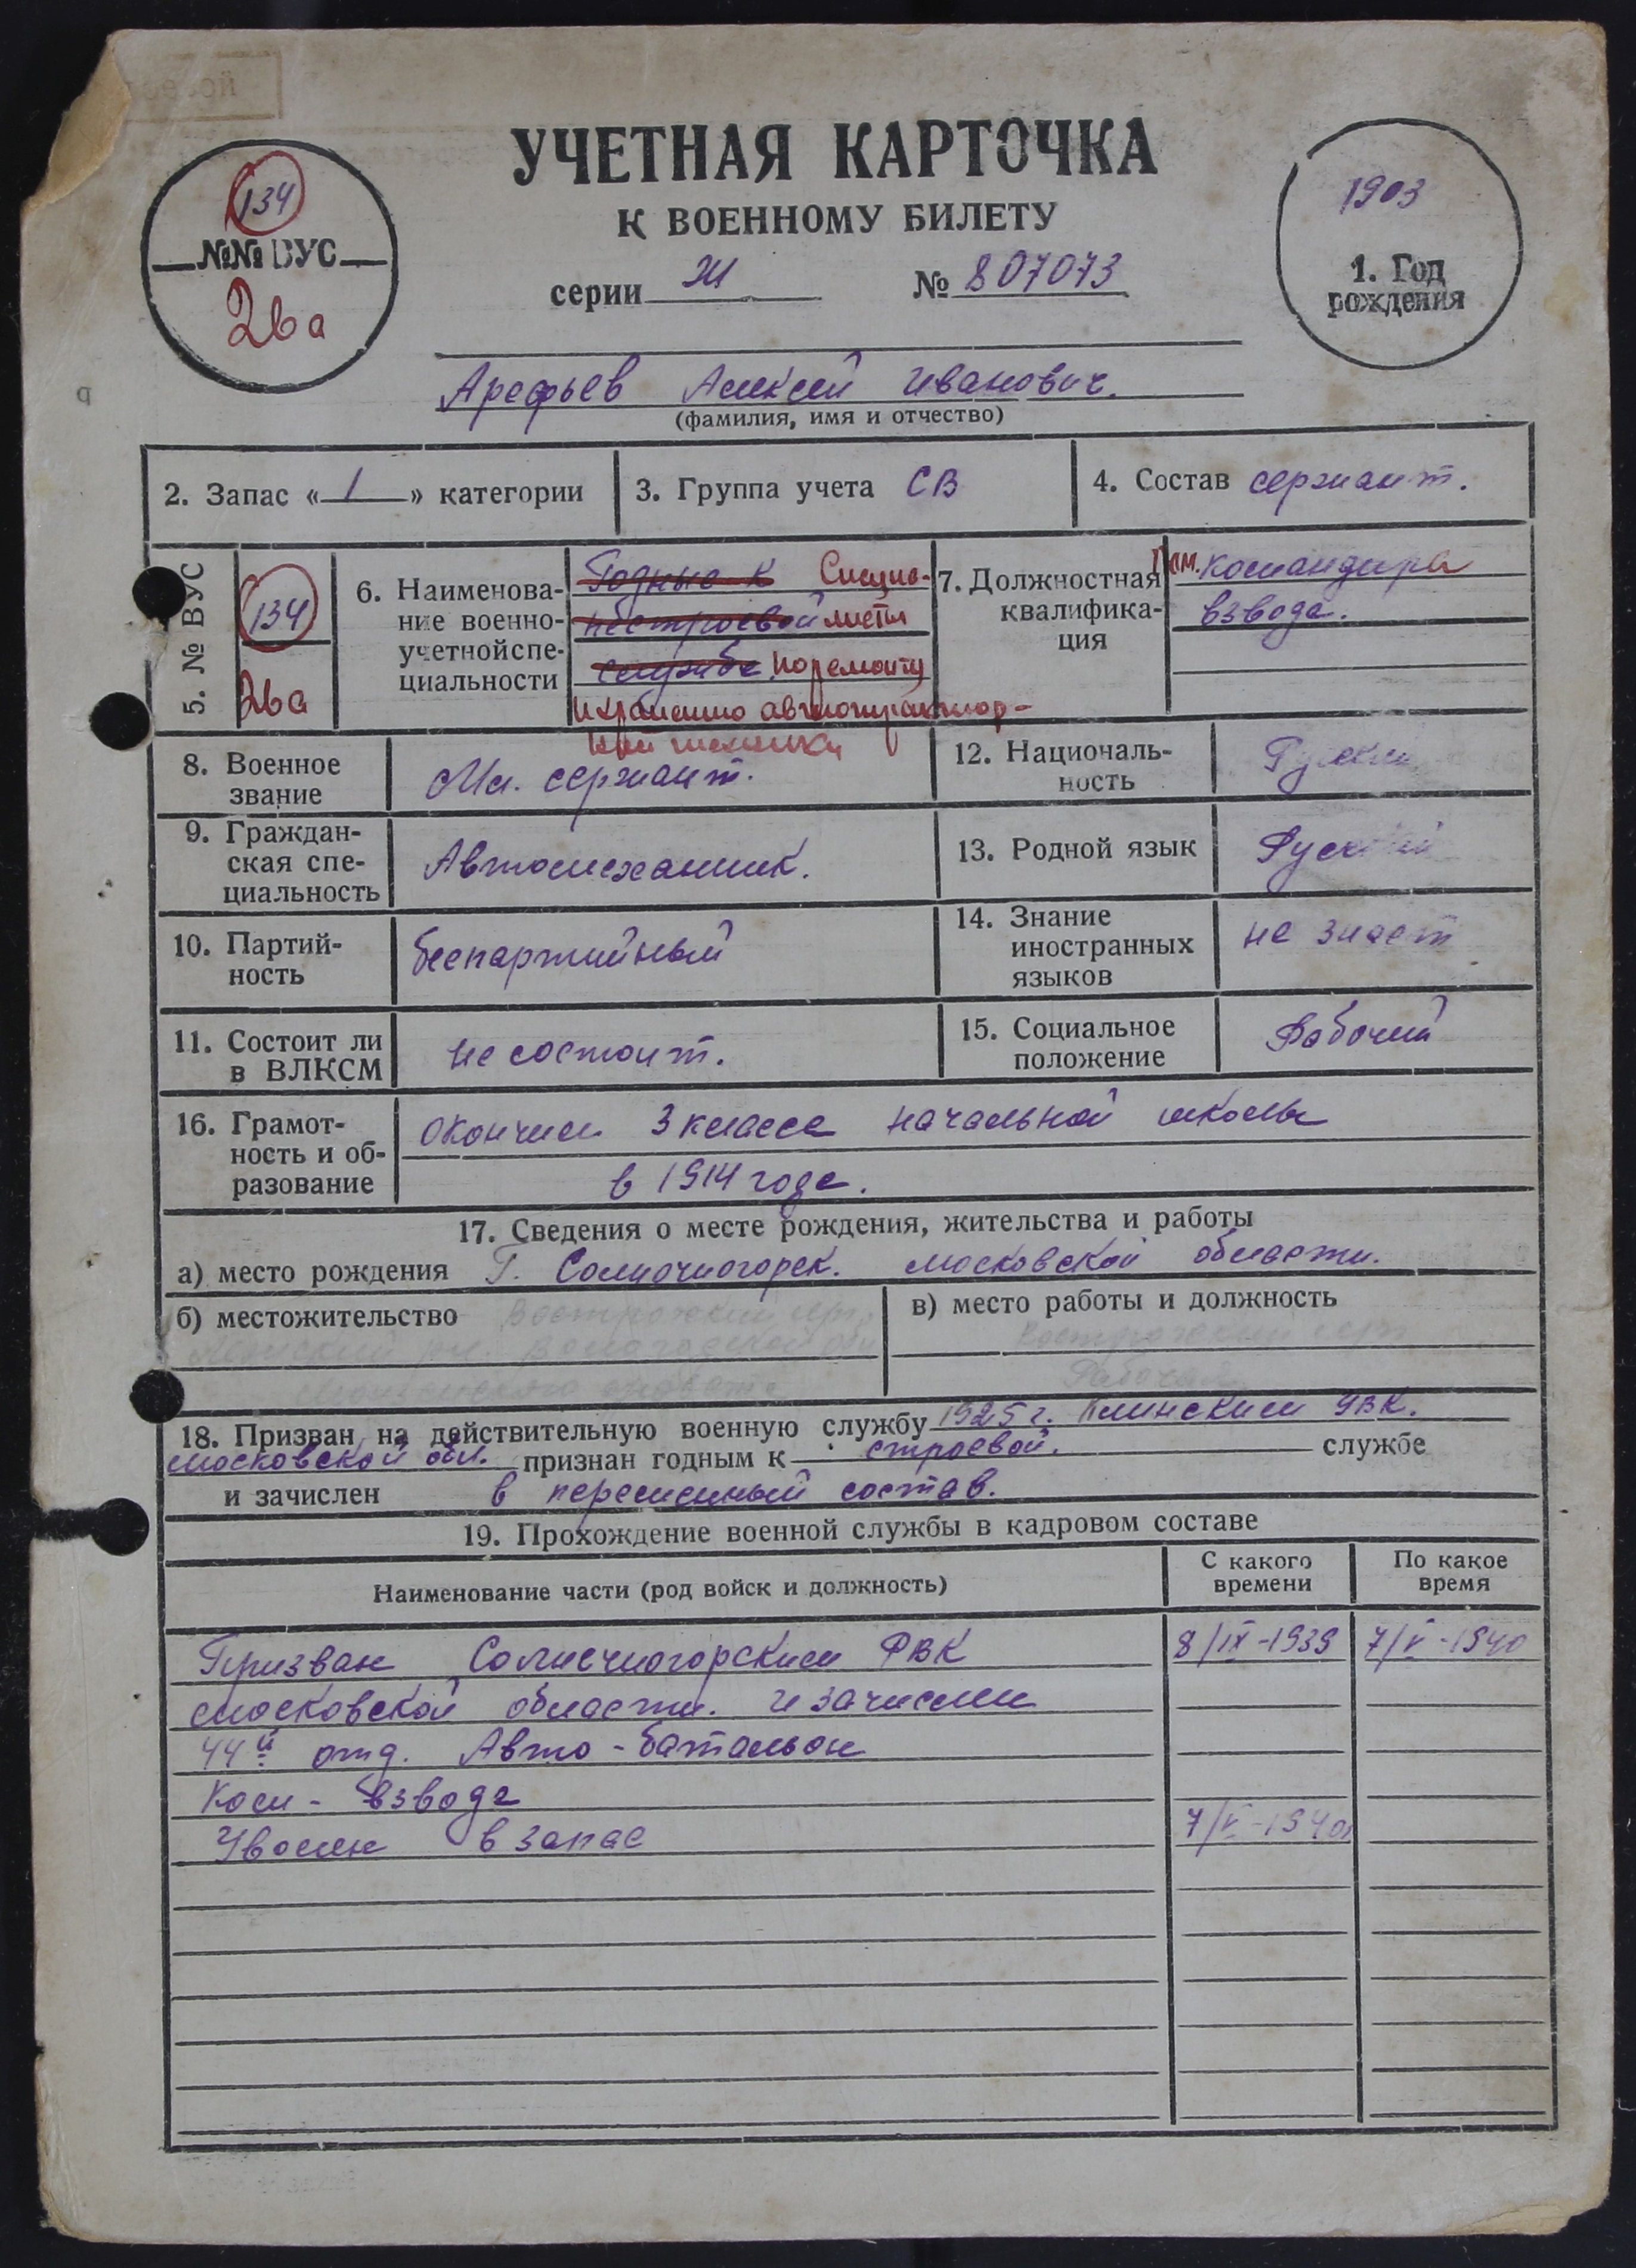 УЧЕТНАЯ КАРТОЧКА
К ВОЕННОМУ БИЛЕТУ
серии № 807073
134
№№ ВУС
26а
1903
1. Год
рождения
Арефьев Алексей Иванович.
(фамилия, имя и отчество)
2. Запас « 1 » категории
3. Группа учета СВ
4. Состав сержант.
5. № ВУС
134
26а
6. Наименова-
ние военно-
учетной спе-
циальности
Годные к Специа-
нестроевой листы
службе по ремонту
и хранению автотрактор-
ной техники
7. Должностная
квалифика-
ция
Пом. командира
взвода.
8. Военное
звание
Мл. сержант.
9. Граждан-
ская спе-
циальность
Автомеханик.
10. Партий-
ность
беспартийный
11. Состоит ли
в ВЛКСМ
не состоит.
12. Националь-
ность
Русский
13. Родной язык
Русский
14. Знание
иностранных
языков
не знает
15. Социальное
положение
Рабочий
16. Грамот-
ность и об-
разование
окончил 3 класса начальной школы
в 1914 году.
17. Сведения о месте рождения, жительства и работы
а) место рождения г. Солнечногорск. Московской области.
б) местожительство
в) место работы и должность
Рабочий
18. Призван на действительную военную службу 1925 г. Клинским УВК.
Московской обл. признан годным к строевой. службе
и зачислен в переменный состав.
19. Прохождение военной службы в кадровом составе
Наименование части (род войск и должность)
С какого
времени
По какое
время
Призван Солнечногорским РВК 8/IX-1939 7/V-1940
Московской области. и зачислен
44й отд. Авто-батальон
Ком-взвода
Уволен в запас 7/V-1940